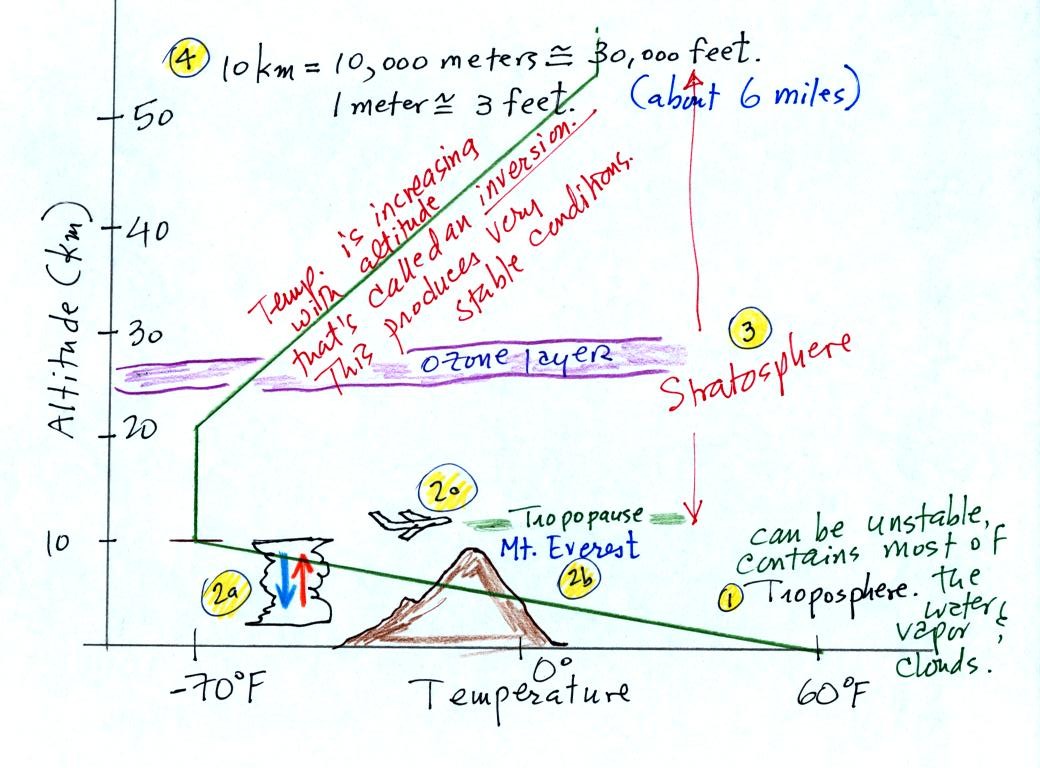 ④ 10 km = 10,000 meters ≅ 30,000 feet.
1 meter ≅ 3 feet.
(about 6 miles)
50
40
30
20
10
Altitude (km)
Temp. is increasing
with altitude
that's called an inversion.
This produces very
stable conditions.
Ozone layer
③
Stratosphere
2c
Tropopause
Mt. Everest
2b
2a
can be unstable,
contains most of
① Troposphere. the
water
vapor &
clouds.
-70°F
0°
60°F
Temperature